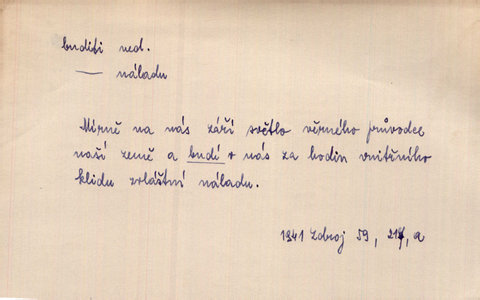 buditi ned.
— náladu
Mírně na nás září světlo věrného průvodce
naší země a budí v nás za hodin vnitřního
klidu zvláštní náladu.
1941 Zdroj 59, a